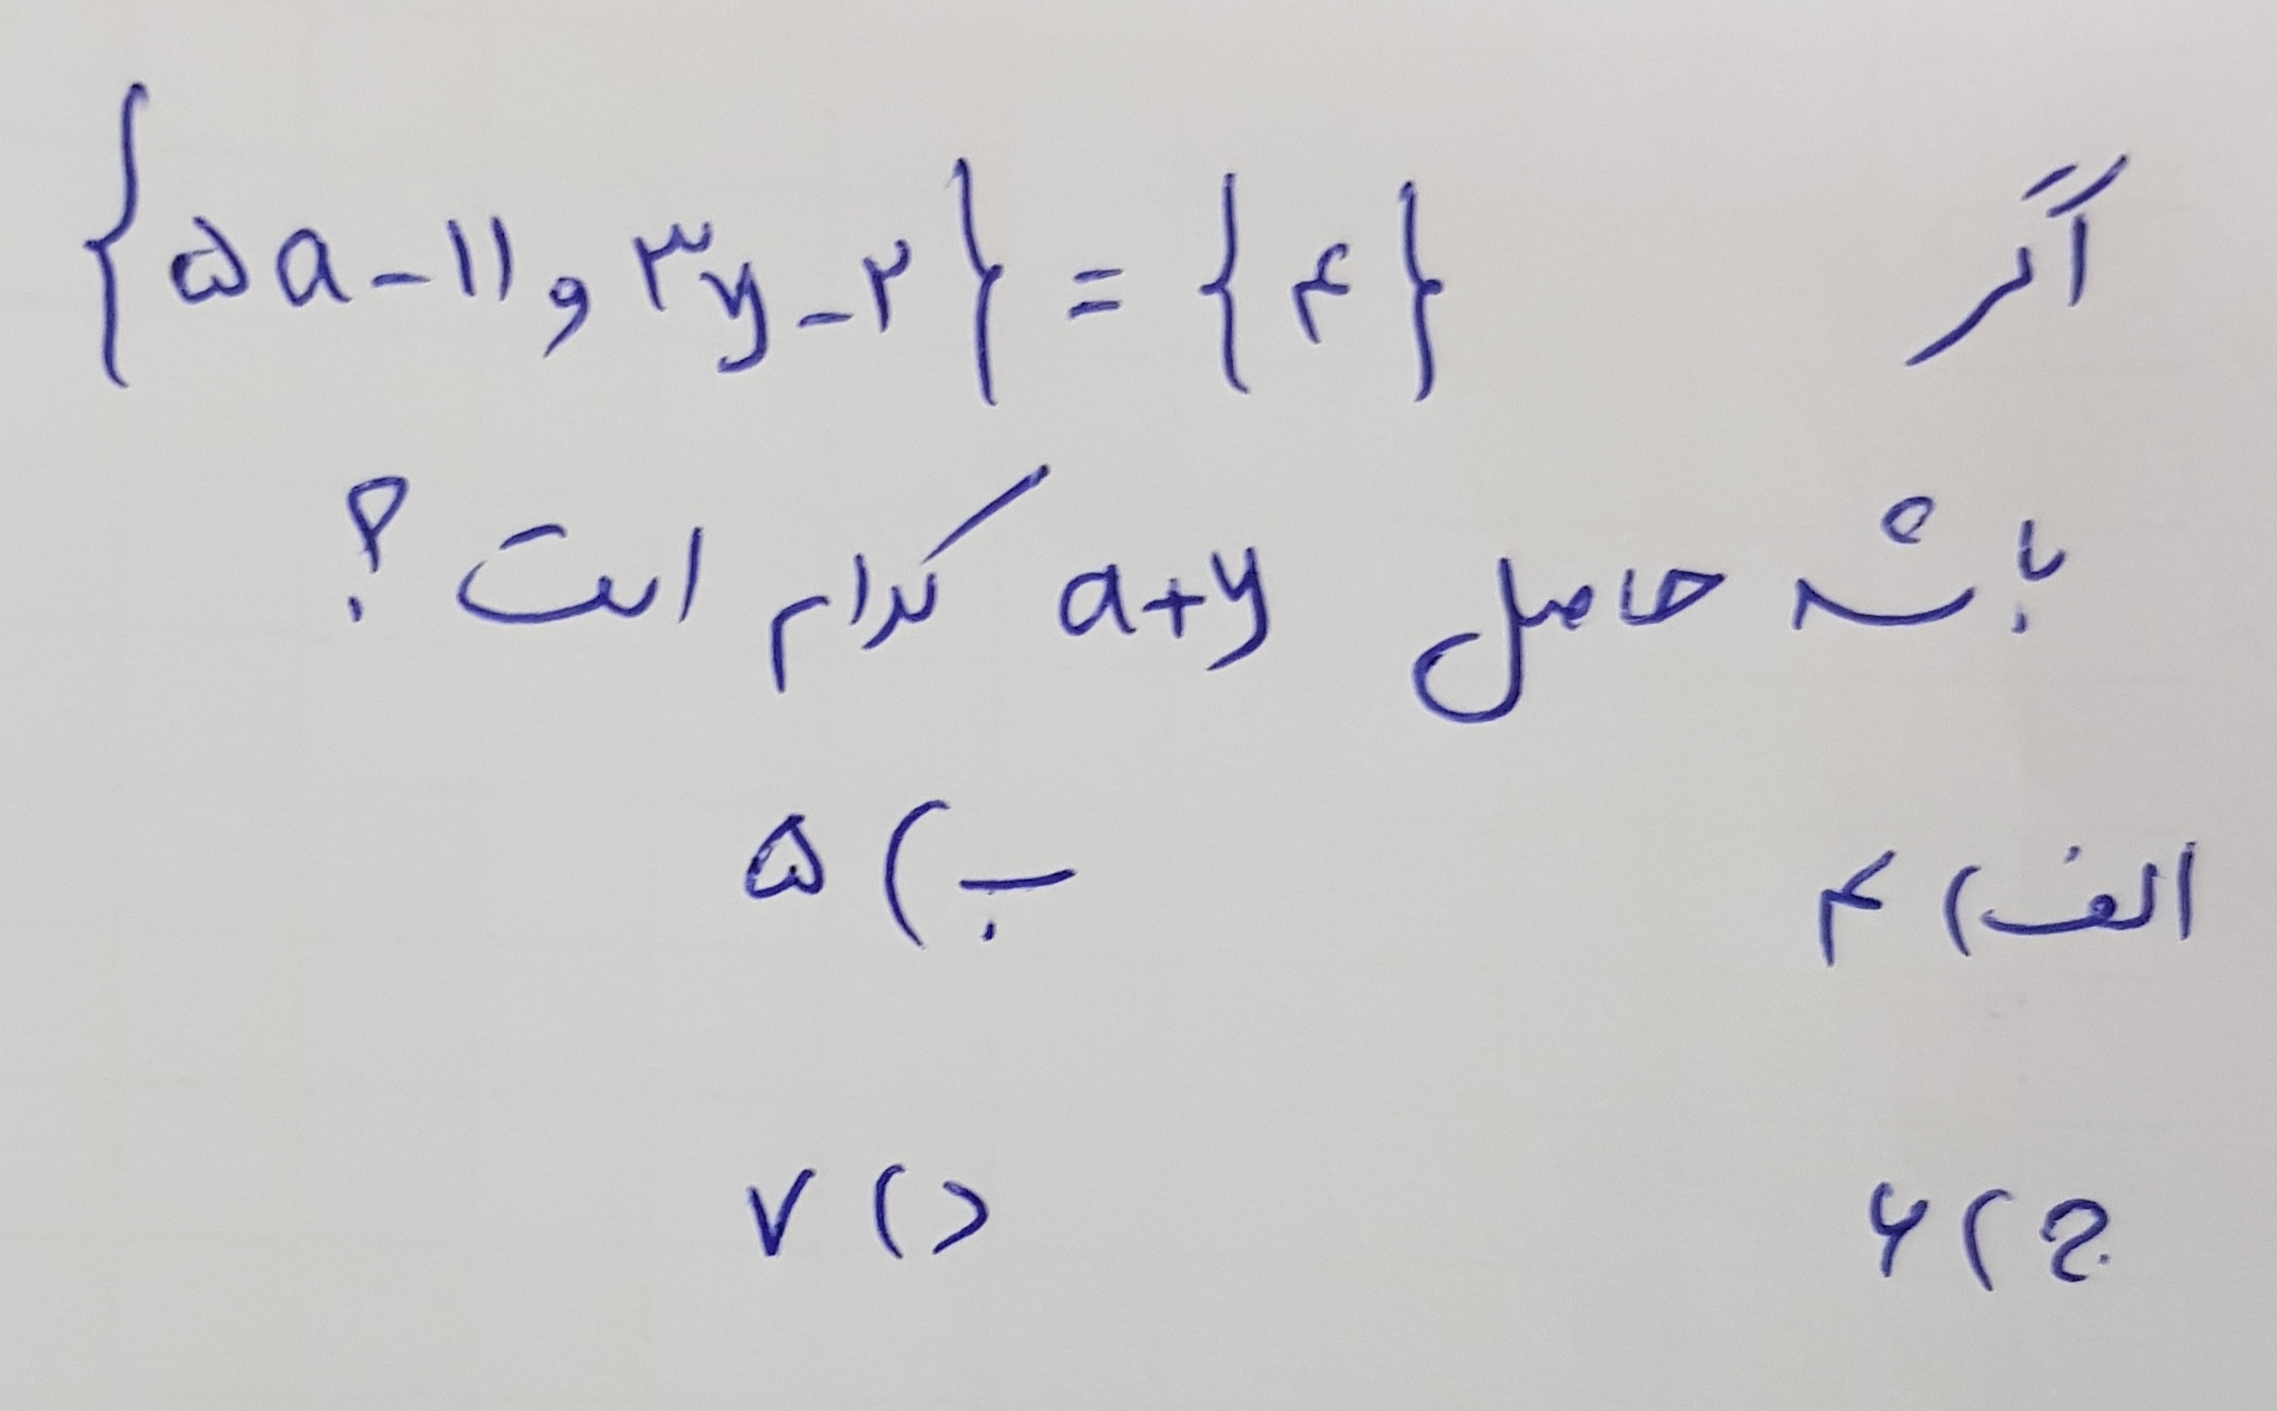 اگر {۵a-۱۱ و ۳y-۲} = {۴}
باشه حاصل a+y کدام است ؟
الف) ۴ ب) ۵
ج) ۶ د) ۷